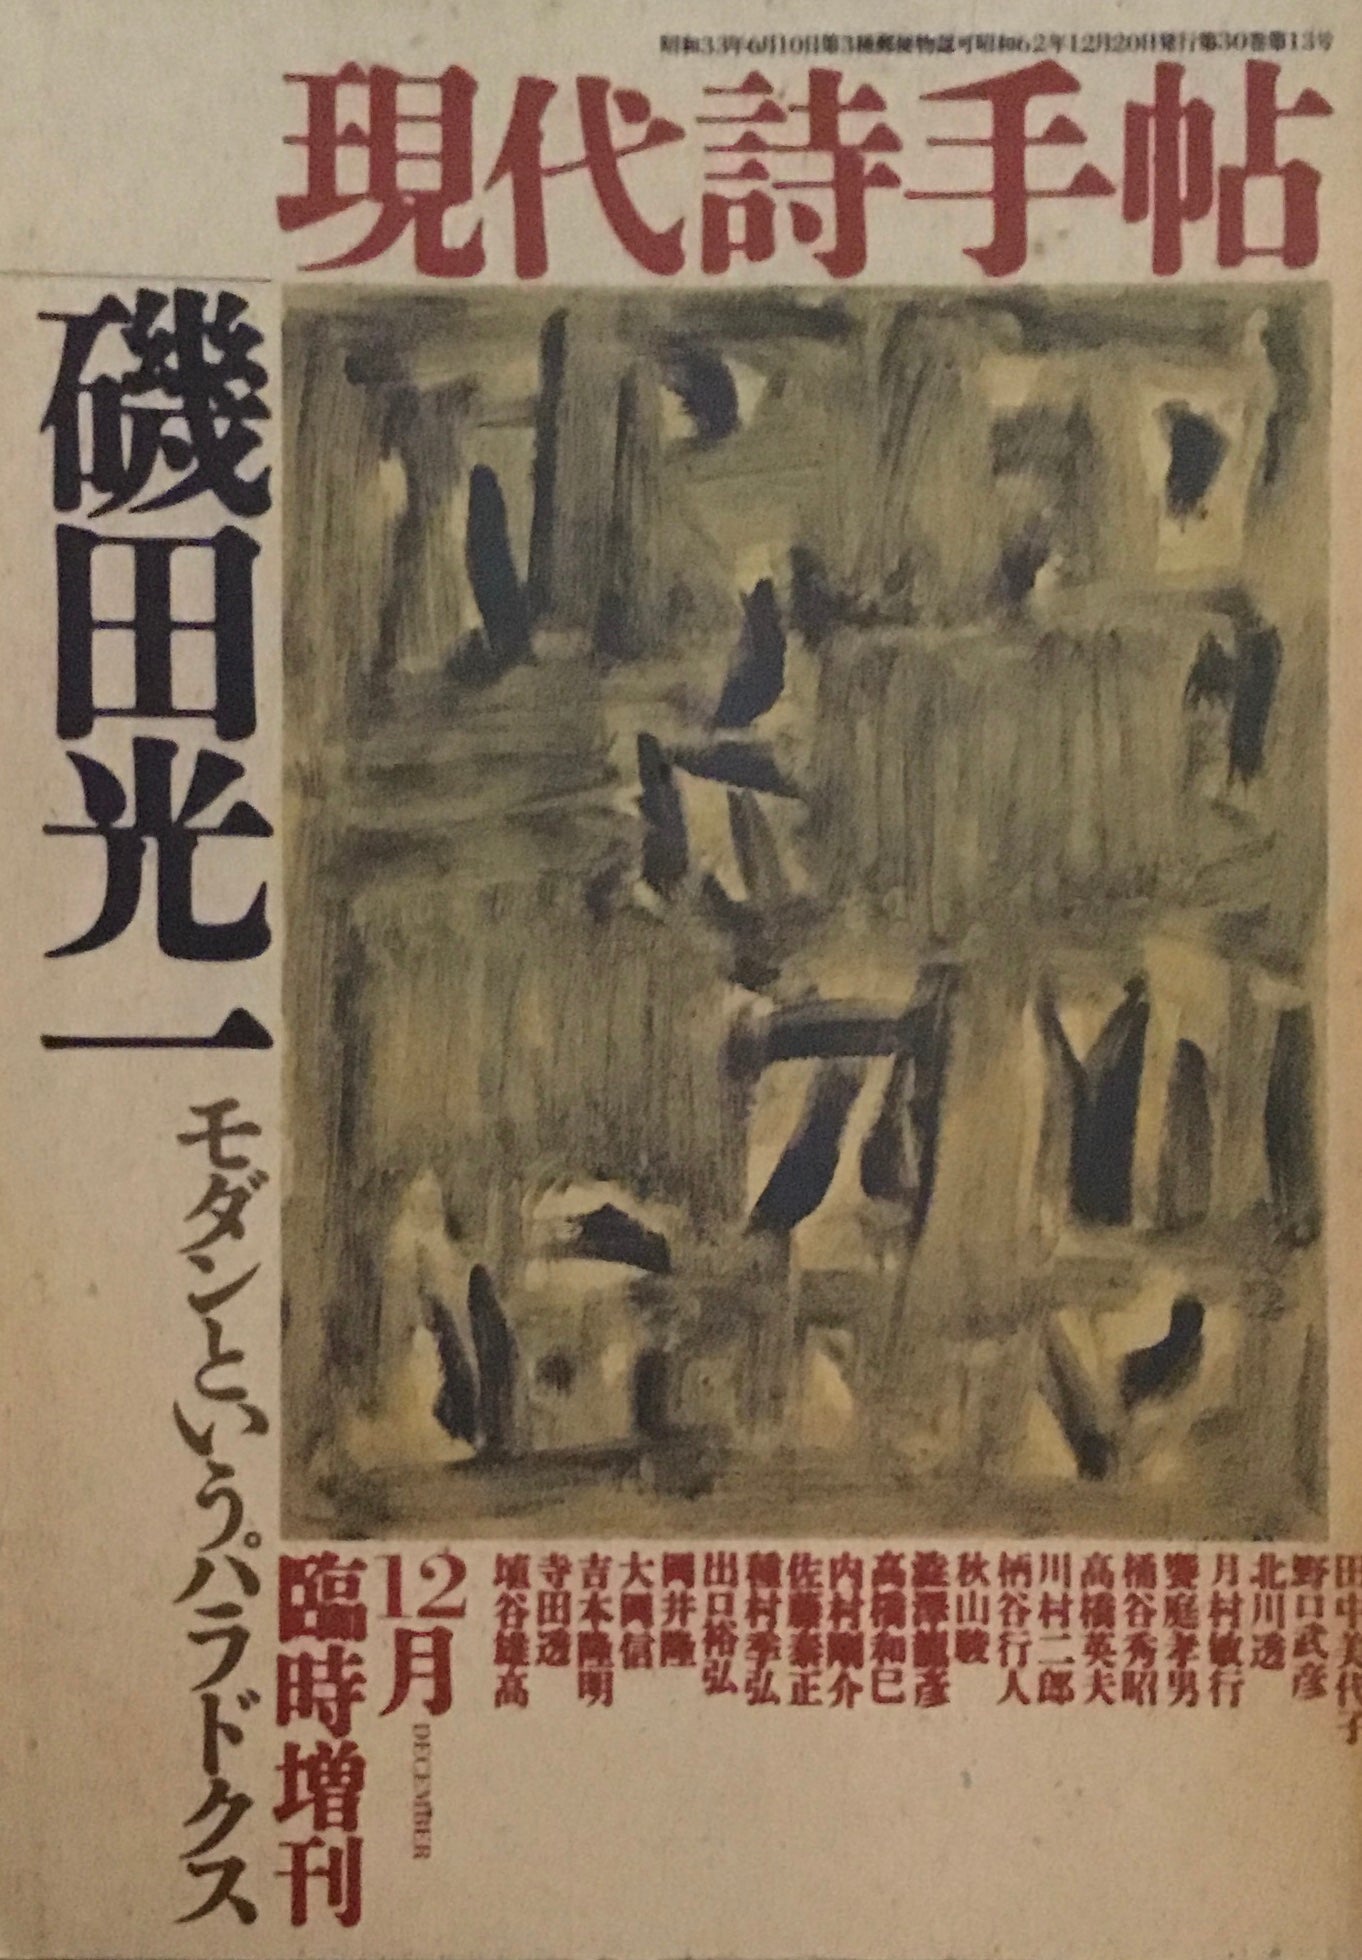 昭和33年6月10日第3種郵便物認可昭和62年12月20日発行第30巻第13号
現代詩手帖
磯田光一
モダンというパラドクス
12月
DECEMBER
臨時増刊
田中美代子
野口武彦
北川透
月村敏行
饗庭孝男
桶谷秀昭
高橋英夫
川村二郎
柄谷行人
秋山駿
澁澤龍彦
高橋和巳
内村剛介
佐藤泰正
種村季弘
出口裕弘
岡井隆
大岡信
吉本隆明
寺田透
埴谷雄高